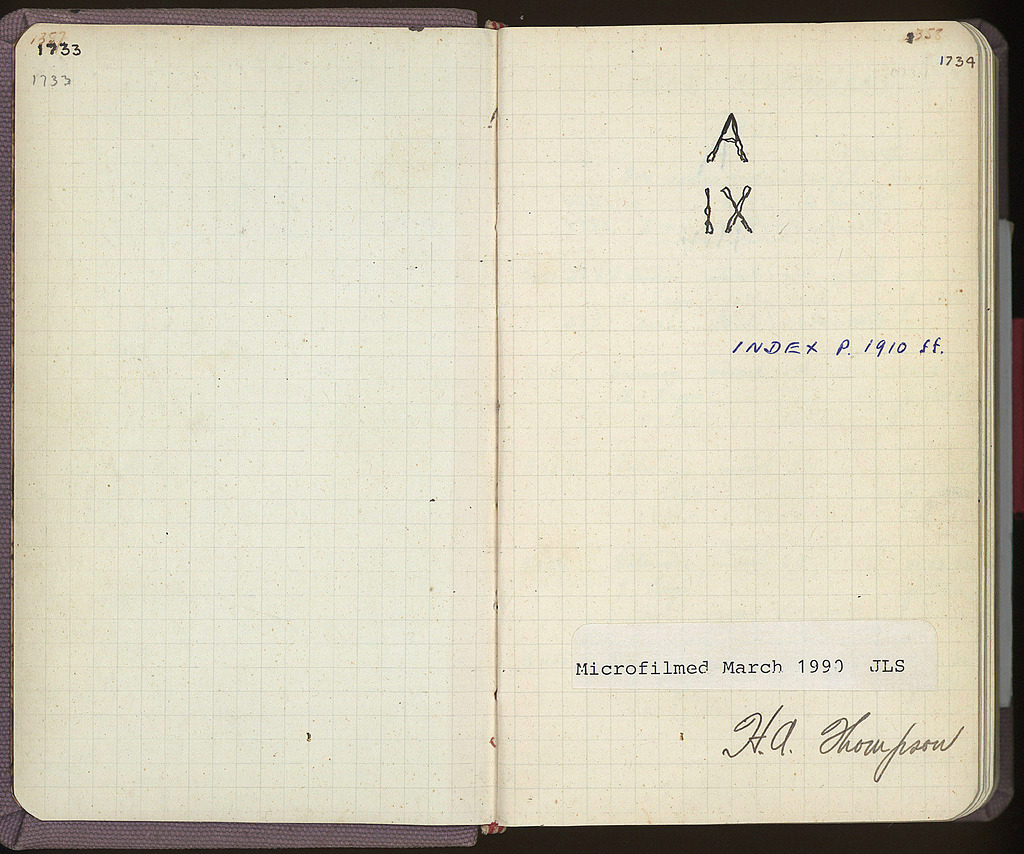 1733
1733
1734
A
IX
INDEX P. 1910 ff.
Microfilmed March 1990 JLS
H.A. Thompson